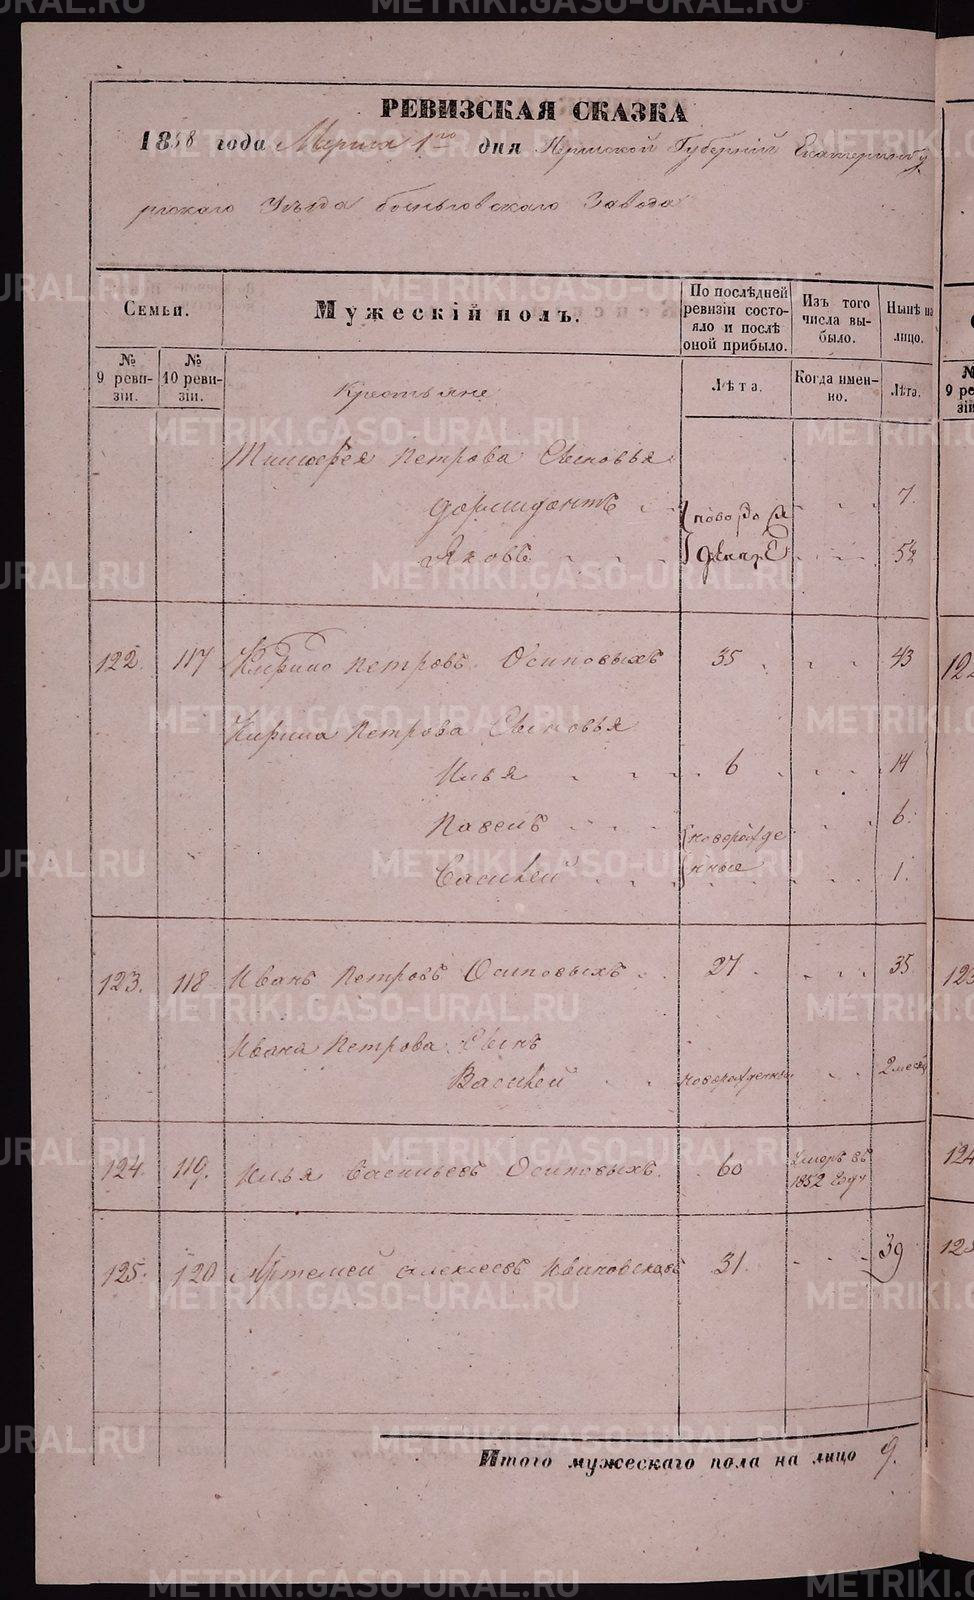 РЕВИЗСКАЯ СКАЗКА
1858 года Марта 1го дня Пермской Губерніи Екатеринбу
ргскаго Уѣзда Быньговскаго Завода
Семьи.
Мужескій полъ.
По послѣдней ревизіи состояло и послѣ оной прибыло.
Изъ того числа выбыло.
Нынѣ на лицо.
№ 9 ревизіи.
№ 10 ревизіи.
Крестьяне
Лѣта.
Когда именно.
Лѣта.
Тимофея Петрова Сыновья
Дормидонтъ новорож 7.
Яковъ денные 5½
122. 117 Кирило Петровъ Осиповыхъ 35 43
Кирила Петрова Сыновья
Илья 6 14
Павелъ новорожде 6.
Василей нные 1.
123. 118 Иванъ Петровъ Осиповыхъ 27 35
Ивана Петрова Сынъ
Василей новорожденный 2 меся
124. 119. Илья Васильевъ Осиповыхъ 60 Умеръ въ 1852 году
125. 120 Артемей Алексѣевъ Ивановскихъ 31. 39
Итого мужескаго пола на лицо 9.
METRIKI.GASO-URAL.RU